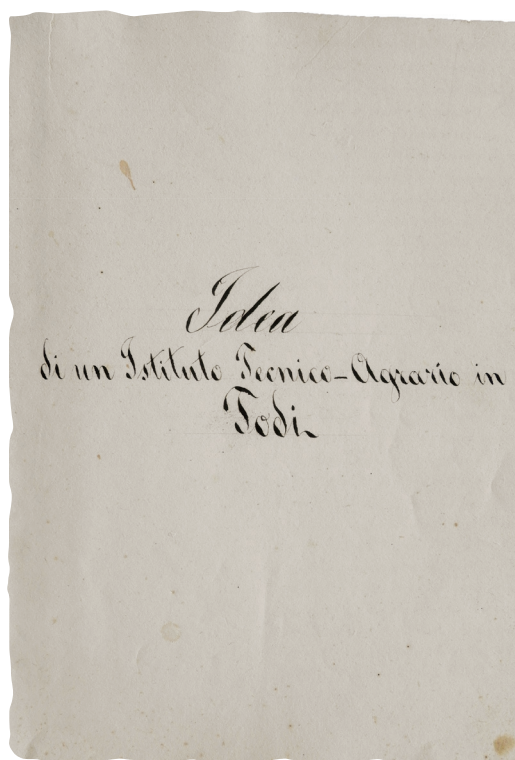 Idea
di un Istituto Tecnico-Agrario in
Todi